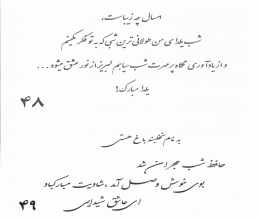 امسال چه زیباست،
شب یلدای من طولانی ترین شبی که به تو فکر میکنم
و از یادآوری نگاه پر مهرت شب سیاهم لبریز از نور عشق میشود...
یلدا مبارک!
۴۸
به نام نخلبند باغ هستی
حافظ شب هجران شد
بوی خوش وصل آمد، شادیت مبارکباد
ای عاشق شیدایی
۴۹